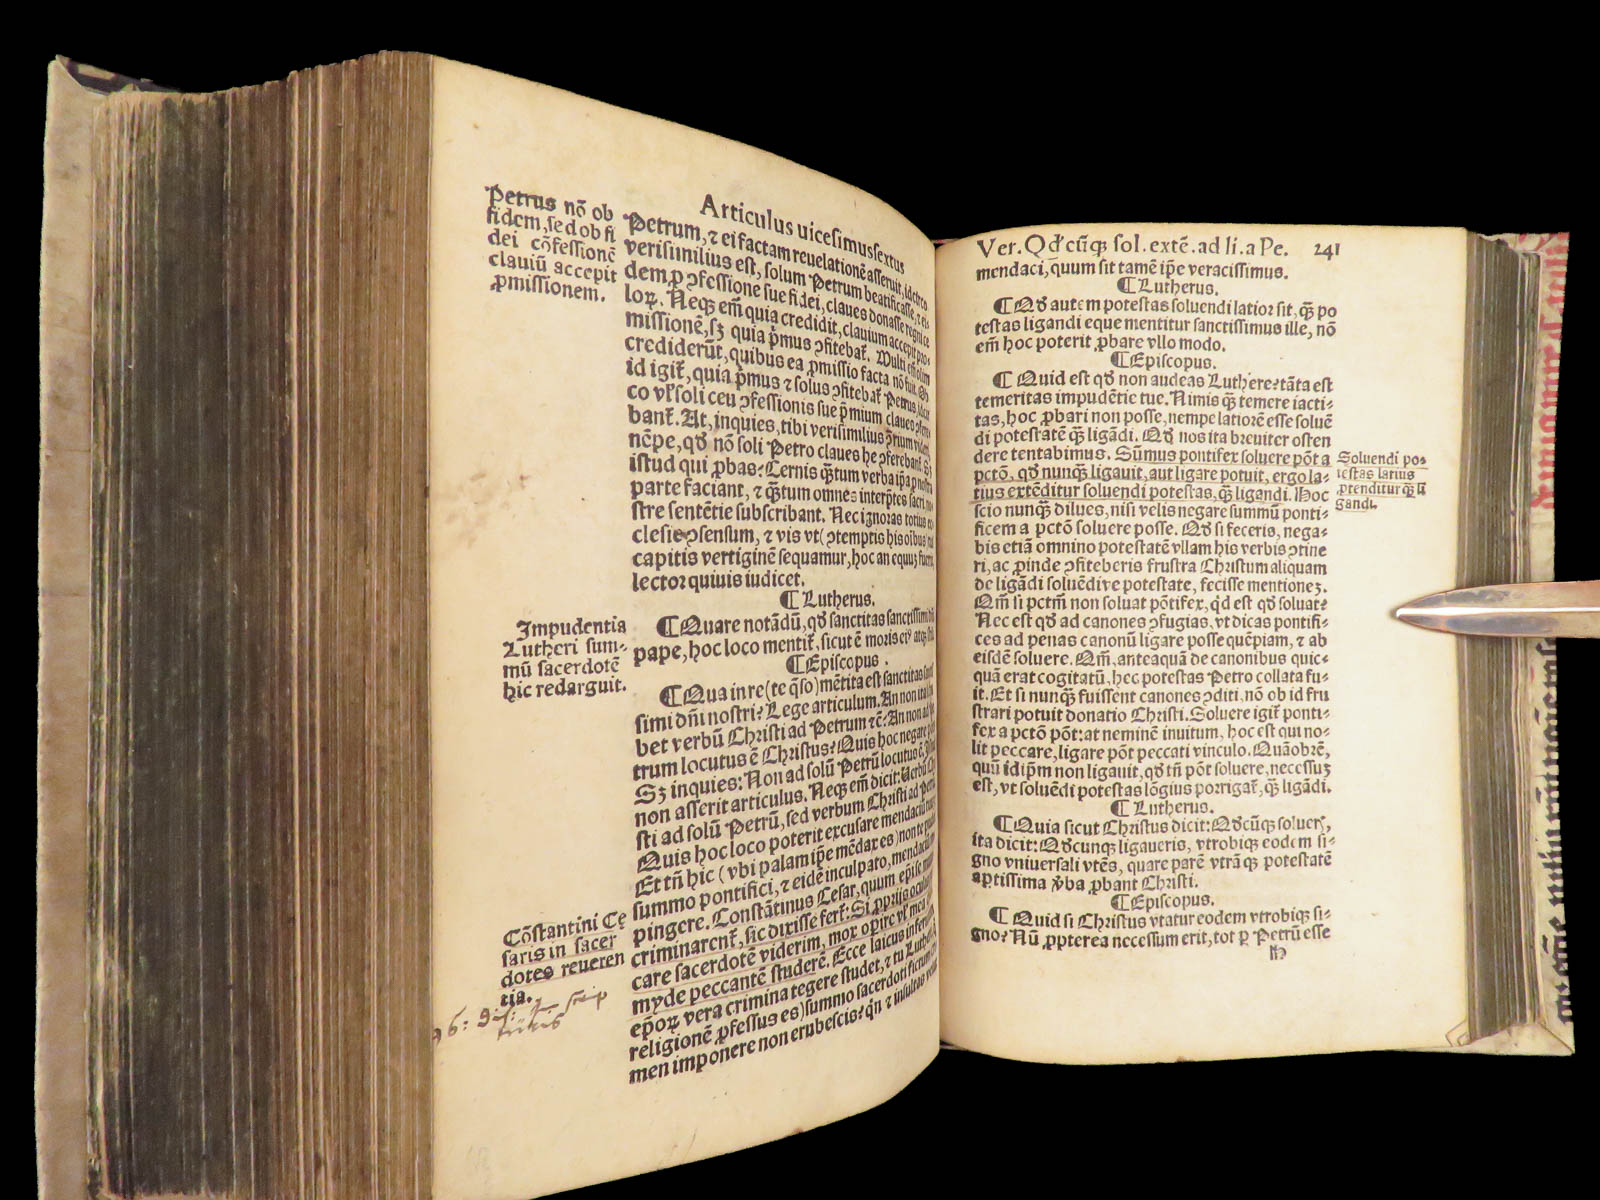 Articulus uicesimussextus
Petrus nō ob
fidem, sed ob fi
dei cōfessionē
clauiū accepit
ꝓmissionem.
Petrum, ⁊ ei factam reuelationē asseruit, ideirco
verisimilius est, solum Petrum beatificasse, ⁊ ei-
dem ꝓ ↄfessione sue fidei, claues donasse regni ce
loꝝ. Neqꝫ em̄ quia credidit, clauium accepit pro-
missionē, sꝫ quia p̄mus ↄfitebat̄. Multi em̄ olim
crediderūt, quibus ea ꝓmissio facta nō fuit. Ob
id igit̄, quia p̄mus ⁊ solus ↄfitebat̄ Petrus,
co vl̓ soli ceu ↄfessionis sue p̄mium claues ↄfere-
bant̄. At, inquies, tibi verisimilius p̄rium videri,
nēpe, qd̓ nō soli Petro claues he ↄferebant̄. Sꝫ
istud qui ꝓbas? Cernis qꝫtum verba ip̄a ꝓ nostra
parte faciant, ⁊ qꝫtum omnes interp̄tes sacri, no-
stre sentētie subscribant. Nec ignoras totius ec
clesie ↄsensum, ⁊ vis vt (ↄtemptis his oībus tui
capitis vertiginē sequamur, hoc an equuꝫ fuerit
lector quiuis iudicet.
¶ Lutherus.
¶ Quare notādū, qd̓ sanctitas sanctissimi dn̄i
pape, hoc loco mentit̄, sicut ē moris eiꝰ atqꝫ stili
¶ Episcopus.
Impudentia
Lutheri sum-
mū sacerdotē
hic redarguit.
¶ Qua in re (te qꝫso) mētita est sanctitas sancti
simi dn̄i nostri? Lege articulum. An non ita
bet verbū Christi ad Petrum ⁊ē? An non ad Pe
trum locutus ē Christus? Quis hoc negare
Sꝫ inquies: Non ad solū Petrū locutus ē.
non asserit articulus. Neqꝫ em̄ dicit: Verbū Chri
sti ad solū Petrū, sed verbum Christi ad Petrū
Quis hoc loco poterit excusare mendaciū
Et tn̄ hic ( vbi palam ip̄e mēdax es) non te pudet
summo pontifici, ⁊ eidē inculpato, mendaciū
pingere. Constātinus Cesar, quum ep̄i se
criminarent̄, sic dixisse fert̄: Si ꝓprijs oculis
care sacerdotē viderim, mox oꝑire vl̓ mea
myde peccantē studerē. Ecce laicus infer
ep̄oꝝ vera crimina tegere studet, ⁊ tu Luthere
religionē ꝓfessus es) summo sacerdoti fictum
men imponere non erubescis? qn̄ ⁊ insultas
Cōstantini Cę
saris in sacer
dotes reueren
tia.
Ver. Qd̓ cūqꝫ sol. extē. ad li. a Pe. 241
mendaci, quum sit tamē ip̄e veracissimus.
¶ Lutherus.
¶ Qd̓ autem potestas soluendi latior sit, qꝫ po
testas ligandi eque mentitur sanctissimus ille, nō
em̄ hoc poterit ꝓbare vllo modo.
¶ Episcopus.
¶ Quid est qd̓ non audeas Luthere? tāta est
temeritas impudētie tue. Nimis qꝫ temere iacti-
tas, hoc ꝓbari non posse, nempe latiorē esse soluē
di potestatē qꝫ ligādi. Qd̓ nos ita breuiter osten
dere tentabimus. Sūmus pontifex soluere pōt a
pctō, qd̓ nunqꝫ ligauit, aut ligare potuit, ergo la-
tius extēditur soluendi potestas, qꝫ ligandi. Hoc
scio nunqꝫ dilues, nisi velis negare summū ponti-
ficem a pctō soluere posse. Qd̓ si feceris, nega-
bis etiā omnino potestatē vllam his verbis ↄtine
ri, ac ꝓinde ↄfiteberis frustra Christum aliquam
de ligādi soluēdive potestate, fecisse mentioneꝫ.
Qm̄ si pctm̄ non soluat pōtifex, qd̓ est qd̓ soluat?
Nec est qd̓ ad canones ↄfugias, vt dicas pontifi-
ces ad penas canonū ligare posse quēpiam, ⁊ ab
eisdē soluere. Qm̄, anteaquā de canonibus quic-
quā erat cogitatū, hec potestas Petro collata fu-
it. Et si nunqꝫ fuissent canones ↄditi, nō ob id fru
strari potuit donatio Christi. Soluere igit̄ ponti-
fex a pctō pōt: at neminē inuitum, hoc est qui no-
lit peccare, ligare pōt peccati vinculo. Quāobrē,
quū id ip̄m non ligauit, qd̓ tn̄ pōt soluere, necessuꝫ
est, vt soluēdi potestas lōgius porrigat̄, qꝫ ligādi.
¶ Lutherus.
¶ Quia sicut Christus dicit: Qd̓cūqꝫ solueris,
ita dicit: Qd̓cunqꝫ ligaueris, vtrobiqꝫ eodem si-
gno vniuersali vtēs, quare parē vtrāqꝫ potestatē
aptissima v̓ba ꝓbant Christi.
¶ Episcopus.
¶ Quid si Christus vtatur eodem vtrobiqꝫ si-
gno? Nū ꝓpterea necessum erit, tot ꝑ Petrū esse
Soluendi po-
testas latius
ꝓtenditur qꝫ li
gandi.